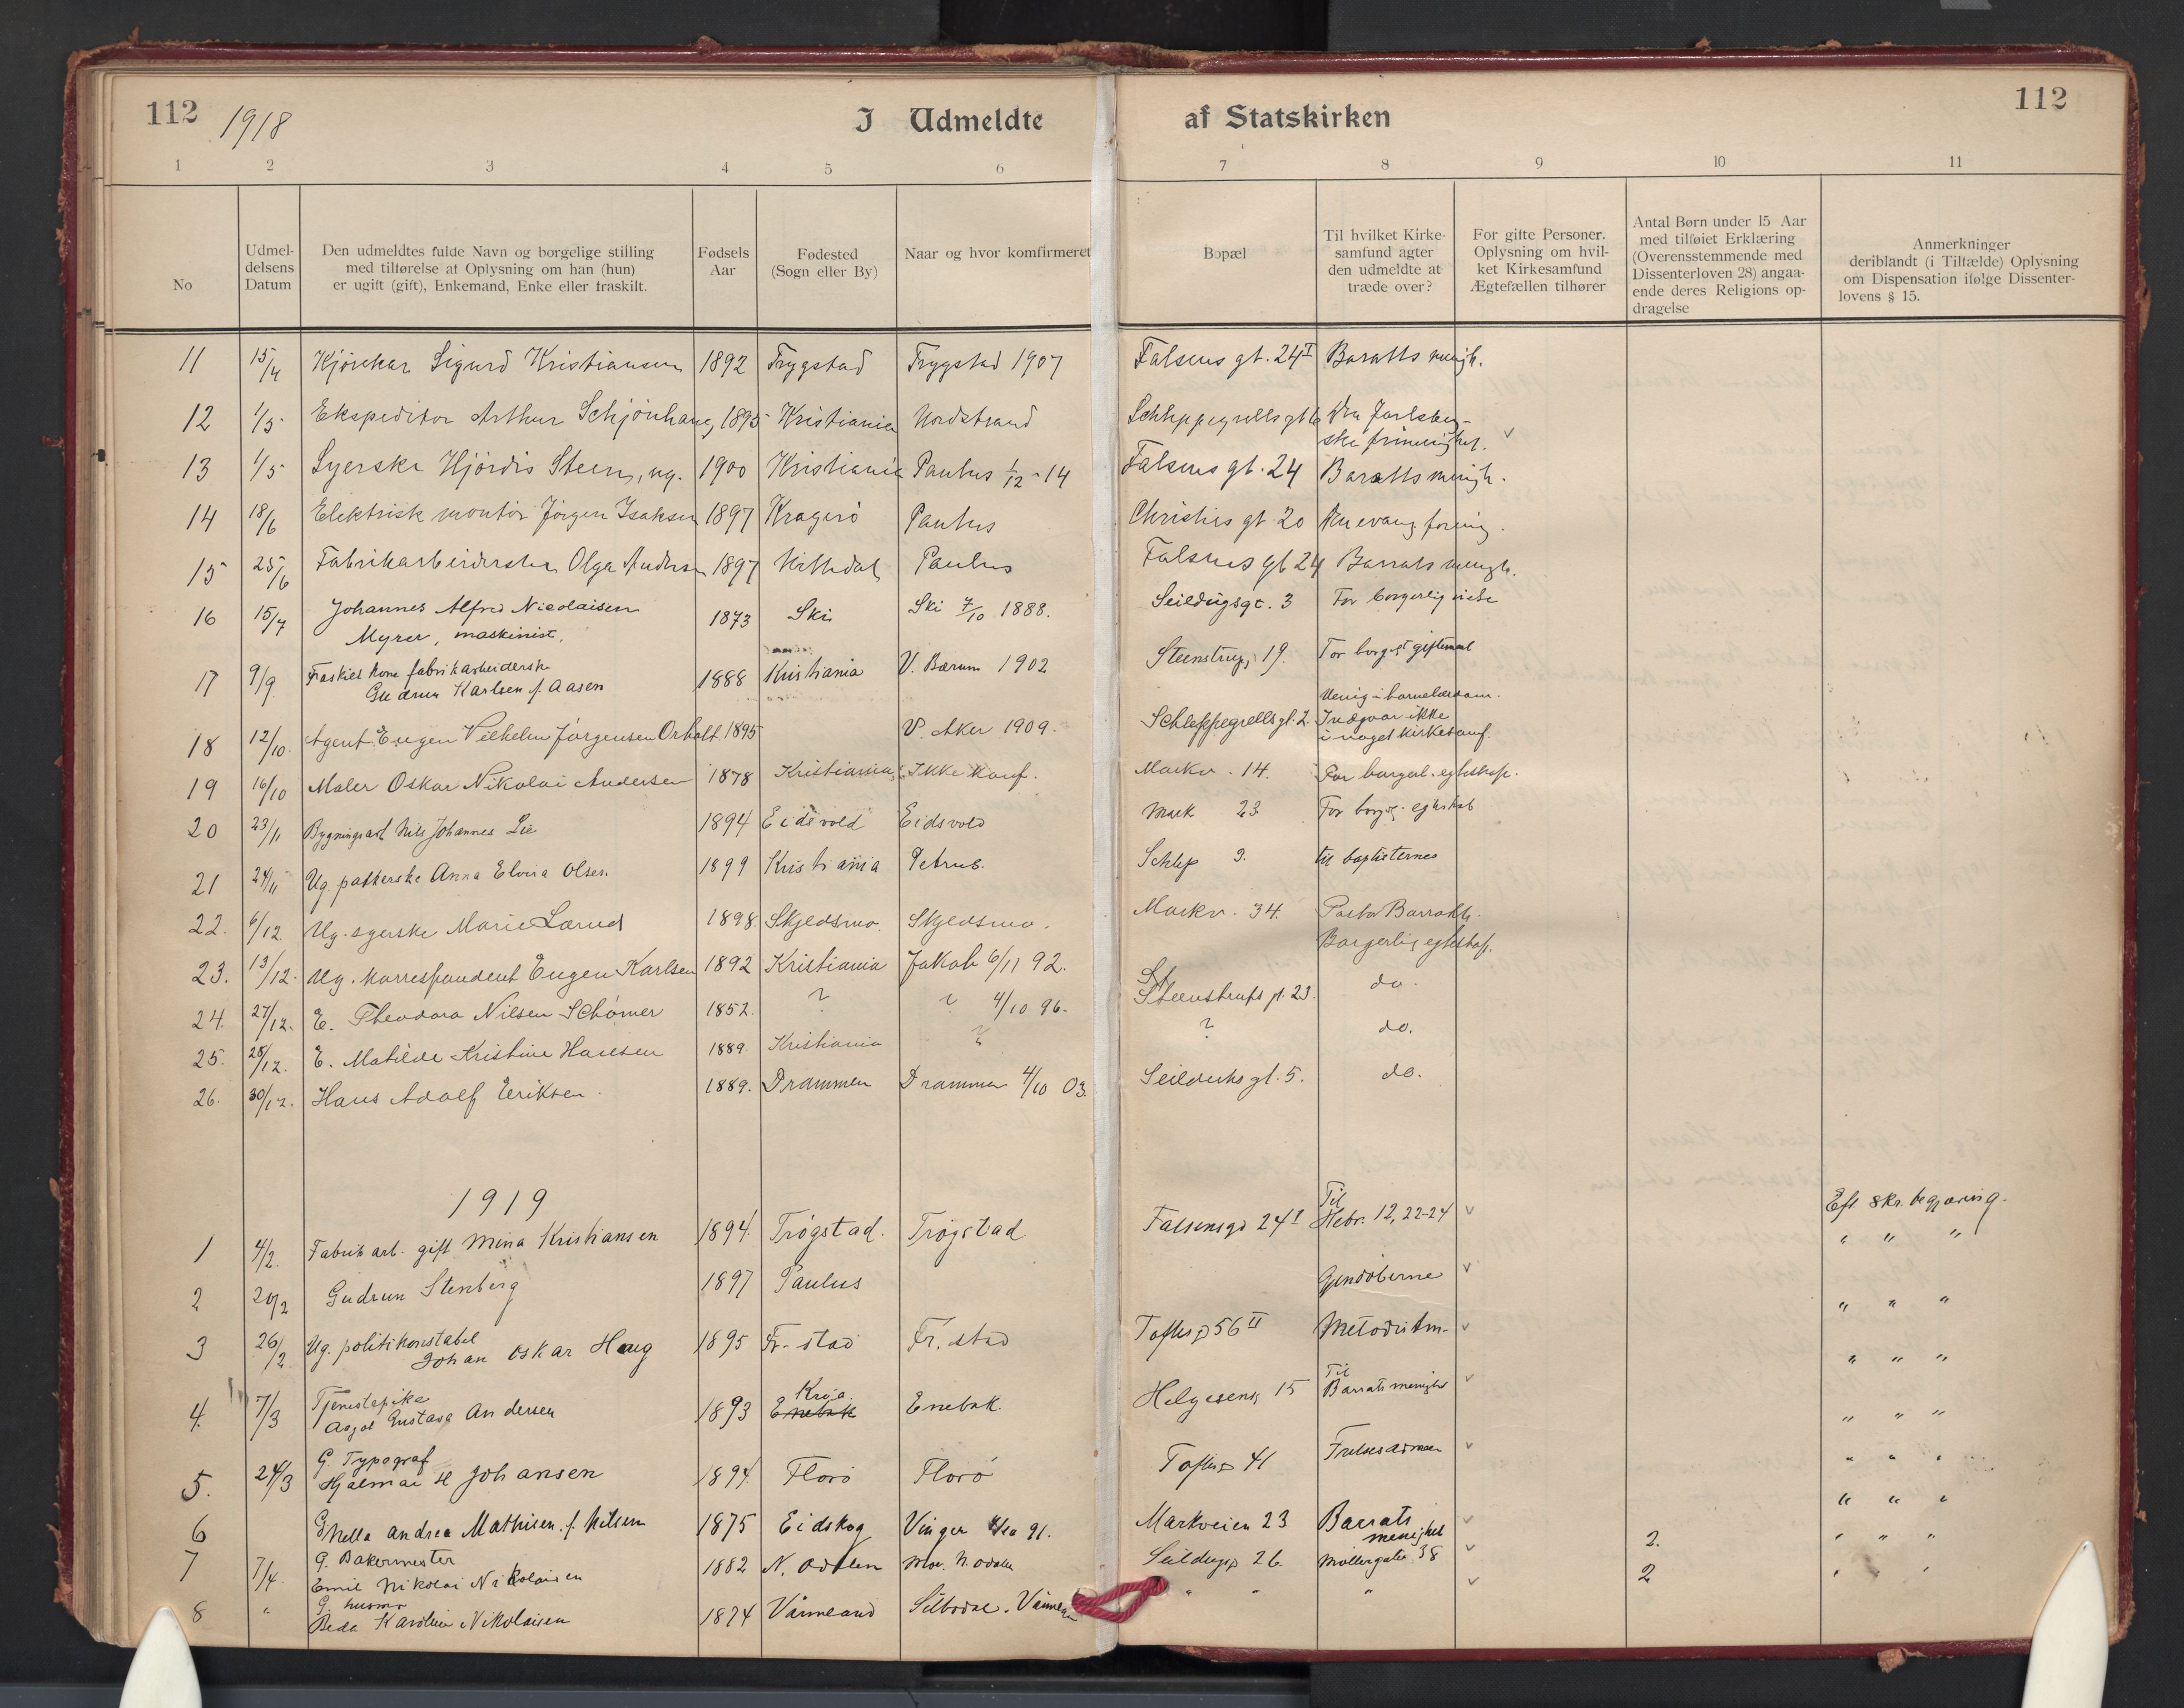 112 1918 I Udmeldte af Statskirken 112
1 2 3 4 5 6 7 8 9 10 11
No
Udmel-
delsens
Datum
Den udmeldtes fulde Navn og borgelige stilling
med tilførelse af Oplysning om han (hun)
er ugift (gift), Enkemand, Enke eller fraskilt.
Fødsels
Aar
Fødested
(Sogn eller By)
Naar og hvor komfirmeret
Bopæl
Til hvilket Kirke-
samfund agter
den udmeldte at
træde over?
For gifte Personer.
Oplysning om hvil-
ket Kirkesamfund
Ægtefællen tilhører
Antal Børn under 15 Aar
med tilføiet Erklæring
(Overensstemmende med
Dissenterloven 28) angaa-
ende deres Religions op-
dragelse
Anmerkninger
deriblandt (i Tilfælde) Oplysning
om Dispensation ifølge Dissenter-
lovens § 15.
11 15/4 Kjørekar Sigurd Kristiansen 1892 Trygstad Trygstad 1907 Falsens gt. 24 I Baratts menigh.
12 1/5 Ekspeditor Arthur Schjönhaug 1895 Kristiania Nordstrand Schleppegrells gt 6 Den Jarlsberg-
ske frimenighet. v
13 1/5 Syerske Hjördis Steen, ug. 1900 Kristiania Paulus 1/12 - 14 Falsens gt. 24 Baratts menigh.
14 18/6 Elektrisk montör Jörgen Isaksen 1897 Kragerö Paulus Christies gt 20 Den evang. forening.
15 25/6 Fabrikarbeiderske Olga Andersen 1897 Nittedal Paulus Falsens gt 24 Barrats menigh.
16 15/7 Johannes Alfred Nicolaisen
Myrer, maskinist. 1873 Ski Ski 7/10 1888. Seildugsgt. 3 For borgerlig vielse
17 9/9 Fraskilt kone fabrikarbeiderske
Gudrun Karlsen f. Aasen 1888 Kristiania V. Bærum 1902 Steenstrups 19. For borgl giftemaal
18 12/10. Agent Eugen Vilhelm Jørgensen Orholt 1895 V. Aker 1909. Schleppegrells gt. 2. Uenig i barnelærdom.
Indgaar ikke
i noget kirkesamf.
19 16/10 Maler Oskar Nikolai Andersen 1878 Kristiania Ikke konf. Markv. 14. For borgerl. egteskap.
20 23/11 Bygningsarb Nils Johannes Lie 1894 Eidsvold Eidsvold Mark 23 For borg. egteskab
21 24/11 Ug. pakkerske Anna Elvira Olsen 1899 Kristiania Petrus. Schlep 9. til baptisterne
22. 6/12. Ug. syerske Marie Lørud 1898. Skjedsmo. Skjedsmo. Markv. 34. Pastor Barratts.
23. 13/12. Ug. korrespondent Eugen Karlsen 1892 Kristiania Jakob 6/11 92. Borgerlig egteskap.
24. 27/12. E. Theodora Nilsen Schömer 1852. ? ? 4/10 96. Steenstrups gt. 23. do.
25. 28/12. E. Matilde Kristine Hansen 1889. Kristiania ? ? do.
26. 30/12. Hans Adolf Eriksen 1889. Drammen Drammen 4/10 03. Seilduks gt. 5. do.
1919
1 4/2. Fabrikarb. gift Mina Kristiansen 1894 Trögstad. Trögstad Falsensgd 24 I Til
Hebr. 12, 22-24 v Eft skr. begjæring.
2 20/2 Gudrun Stenberg 1897 Paulus Gjendöberne v " " "
3 26/2 Ug. politikonstabel
Johan Oskar Haug 1895 Fr. stad Fr. stad Toftes 56 II Metodistm. v " " "
4. 7/3 Tjenestepike
Aagot Gustava Andersen 1893 Kr.ia.
Enebak Enebak. Helgesens 15 Til
Barrats menighet v " " "
5. 24/3 G. Typograf
Hjalmar H Johansen 1894 Florö Florö Toftes 41 Frelsesarmeen v " " "
6 G Nella Andrea Mathisen f. Nilsen 1875 Eidskog Vinger 4/10 91. Markveien 23 Barrats
menighet v 2. " " "
7 7/4. G. Bakermester
Emil Nikolai Nikolaisen 1882 N. Odalen Mo. N. Odalen Seildugs 26. Møllergaten 38 v 2 " " "
8 " G. husmor
Beda Karolin Nikolaisen 1874 Värmland Silbodal. Värmland " " " v